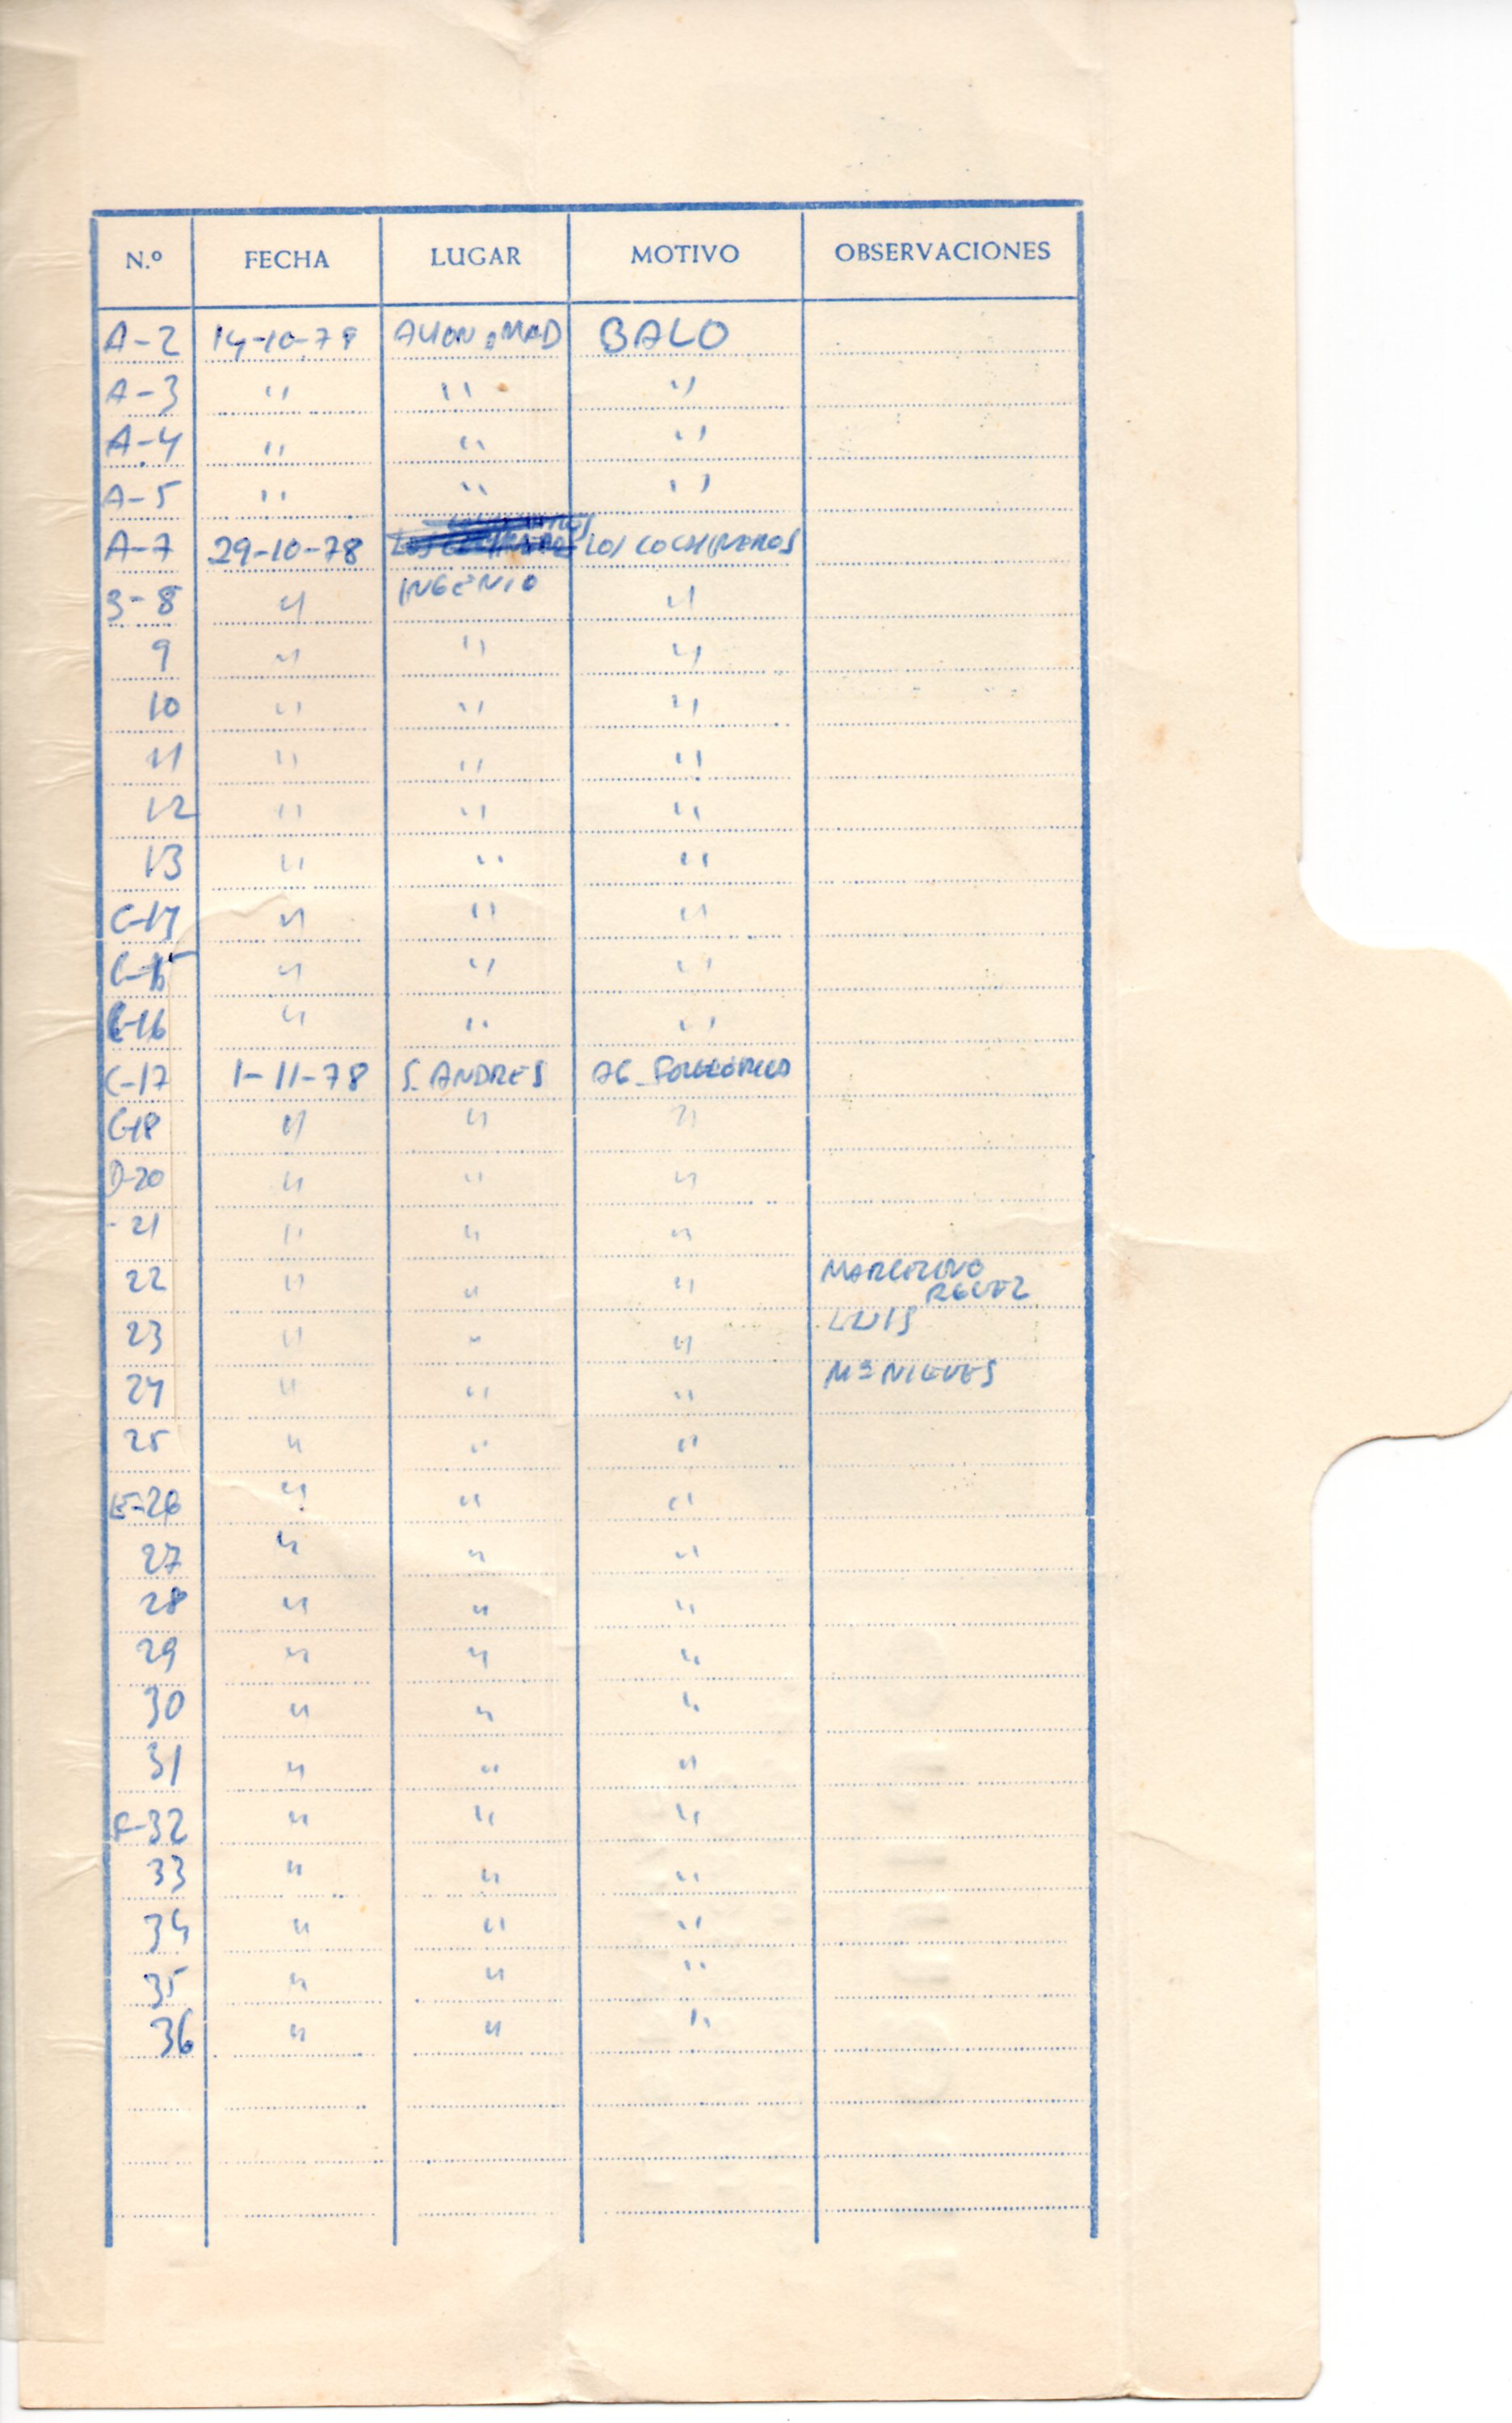 N.º FECHA LUGAR MOTIVO OBSERVACIONES
A-2 14-10-78 BALO
A-3 " " "
A-4 " " "
A-5 " " "
A-7 29-10-78 LOS COCHINEROS
B-8 " INGENIO "
9 " " "
10 " " "
11 " " "
12 " " "
13 " " "
C-14 " " "
C-15 " " "
C-16 " " "
C-17 1-11-78 S. ANDRES AG. FOLCLORICA
C-18 " " "
D-20 " " "
-21 " " "
22 " " " MARCELINO
23 " " " LUIS
24 " " " Mª NIEVES
25 " " "
E-26 " " "
27 " " "
28 " " "
29 " " "
30 " " "
31 " " "
F-32 " " "
33 " " "
34 " " "
35 " " "
36 " " "